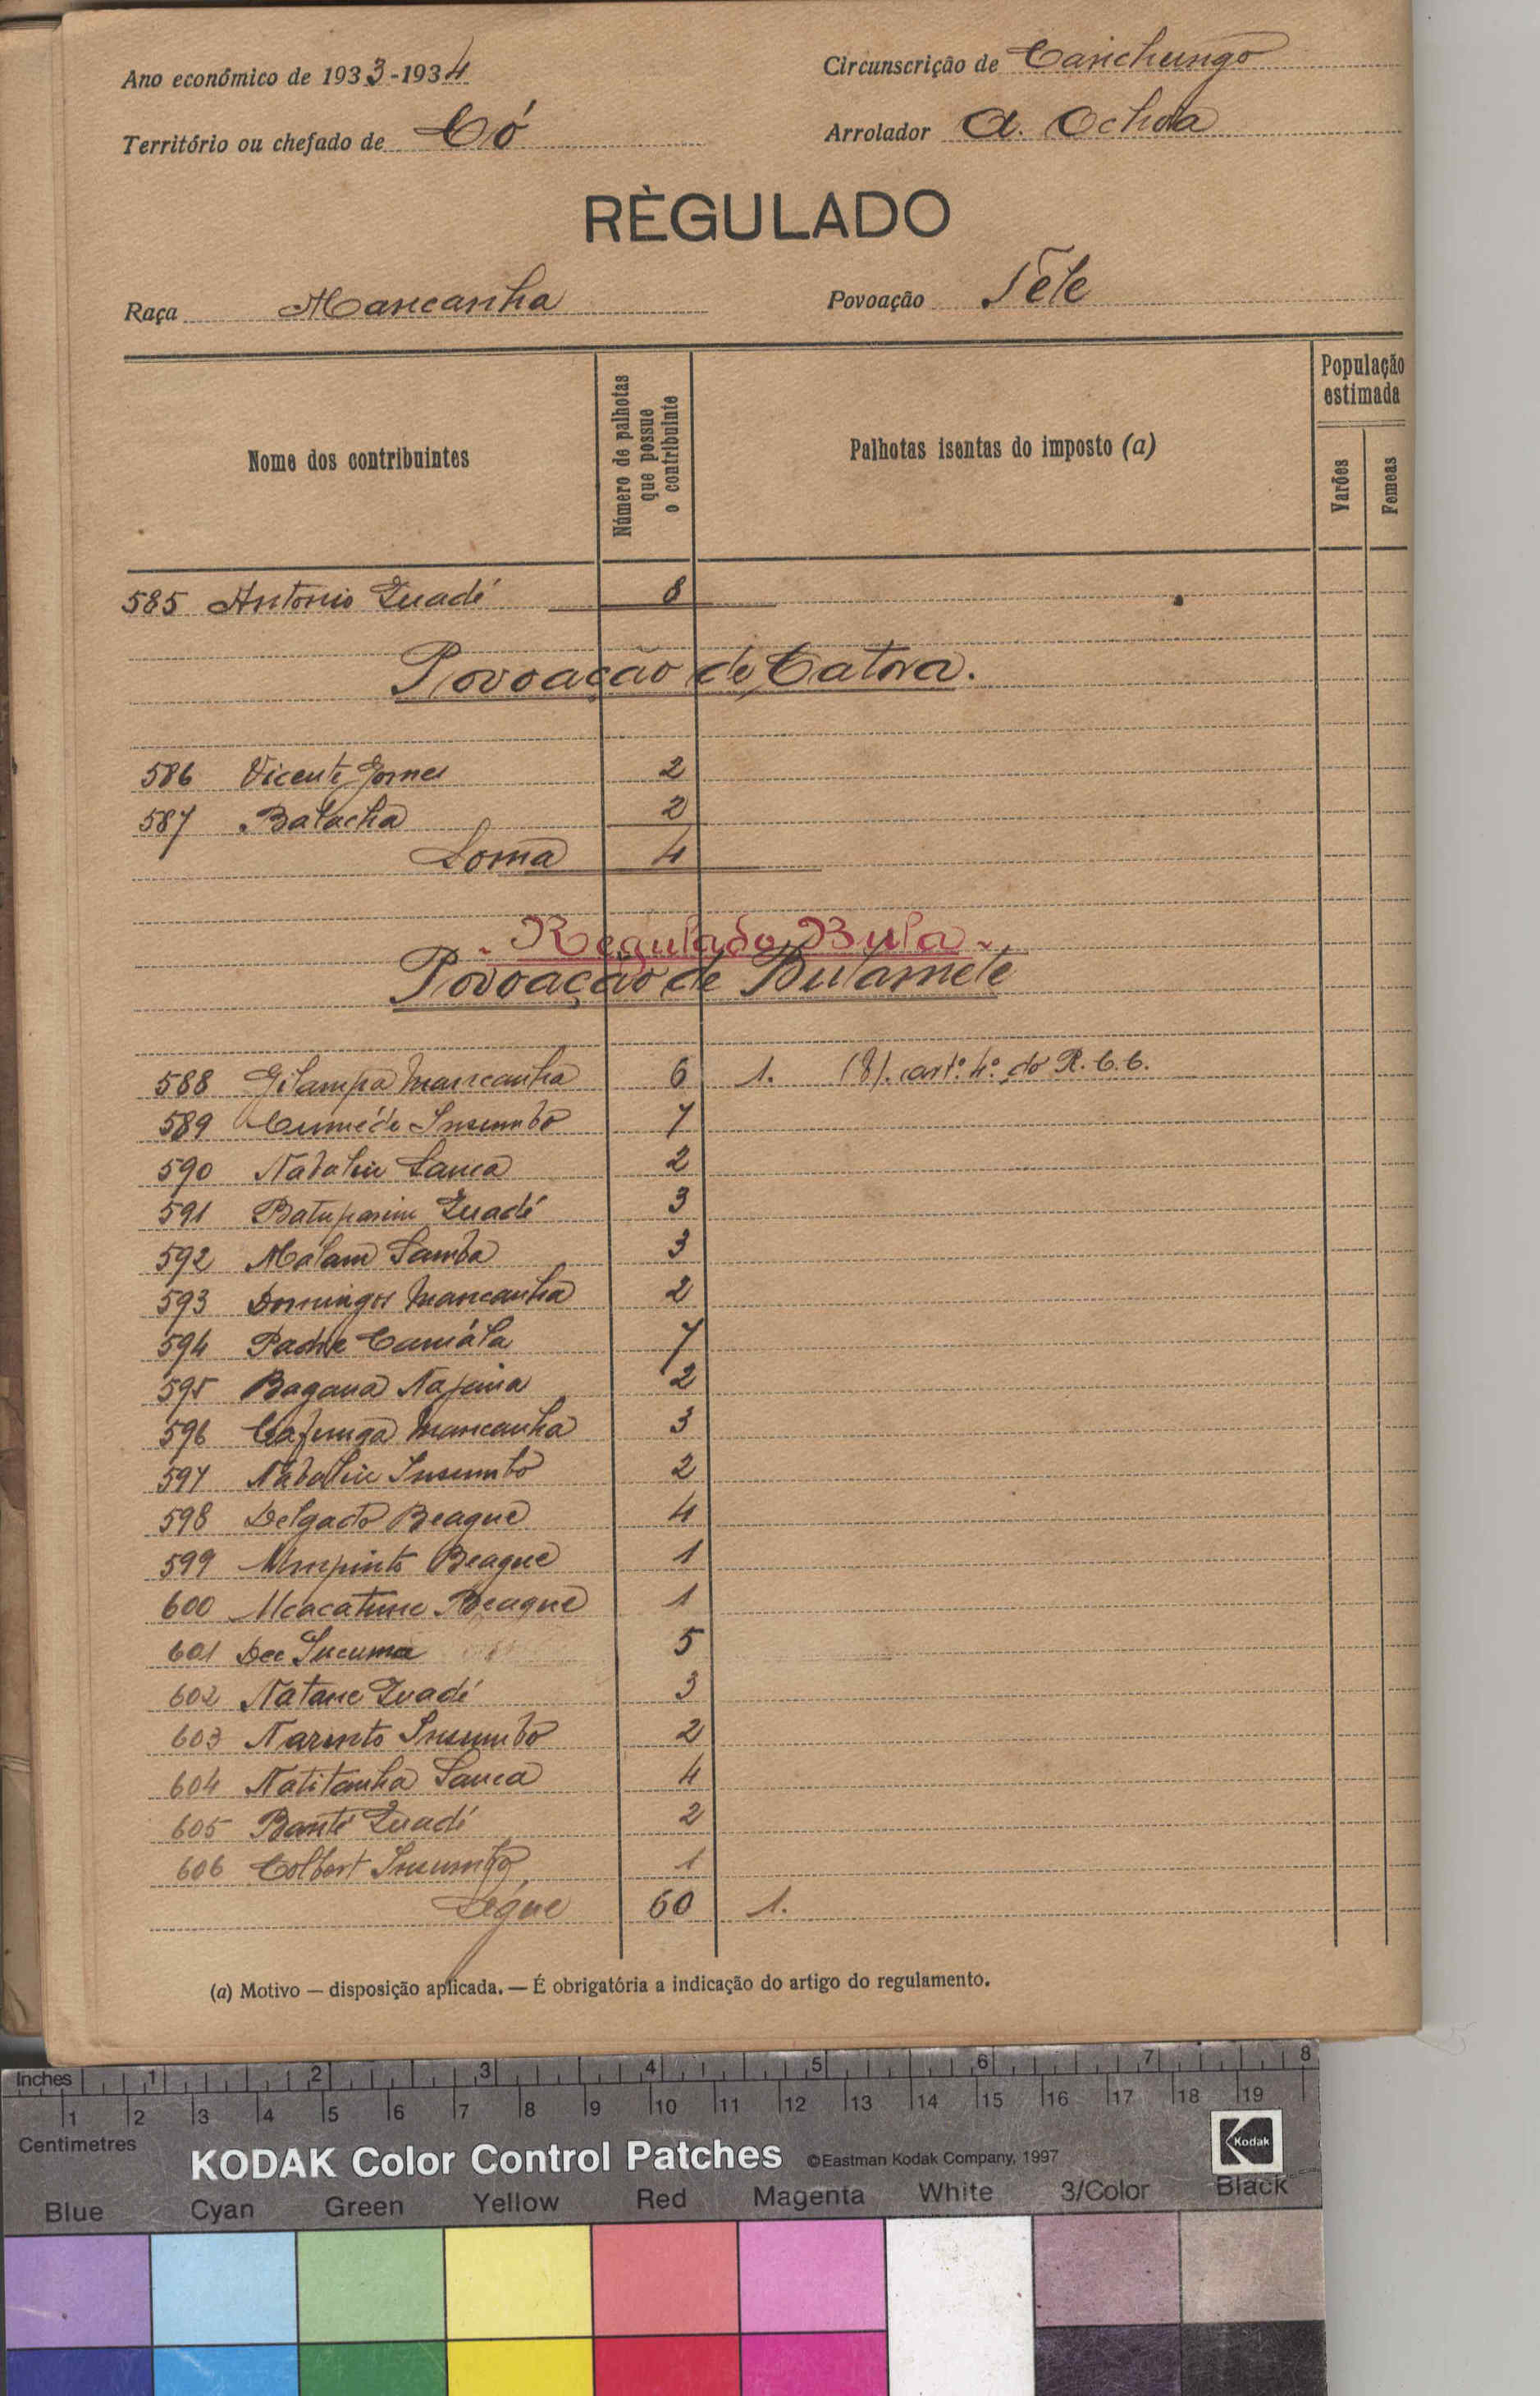 Ano económico de 1933-1934
Circunscrição de Canchungo
Território ou chefado de Có
Arrolador A. Ochôa
RÈGULADO
Raça Mancanha
Povoação Tele
Nome dos contribuintes
Número de palhotas que possue o contribuinte
Palhotas isentas do imposto (a)
População estimada
Varões
Femeas
585 Antonio Quadé 8
Povoação de Catora.
586 Vicente Gomes 2
587 Batacha 2
Soma 4
Regulado Bula
Povoação de Bulamete
588 Gilampa Mancanha 6 1. (8). artº. 4º. do R. C. C.
589 Cuméde Insumbo 7
590 Nabalin Sanca 2
591 Batuparim Quadé 3
592 Malam Samba 3
593 Domingos Mancanha 2
594 Padre Camála 7
595 Bagana Nafuna 2
596 Cafunga Mancanha 3
597 Nabalin Insumbo 2
598 Delgado Beague 4
599 Beague 1
600 Beague 1
601 Dec Sucuma 5
602 Natane Quadé 3
603 Narinto Insumbo 2
604 Natitanha Sanca 4
605 Banté Quadé 2
606 Colbert Insumbo 1
Segue 60 1.
(a) Motivo — disposição aplicada. — É obrigatória a indicação do artigo do regulamento.
Inches 1 2 3 4 5 6 7 8
1 2 3 4 5 6 7 8 9 10 11 12 13 14 15 16 17 18 19
Centimetres
KODAK Color Control Patches ©Eastman Kodak Company, 1997
Kodak
Blue Cyan Green Yellow Red Magenta White 3/Color Black